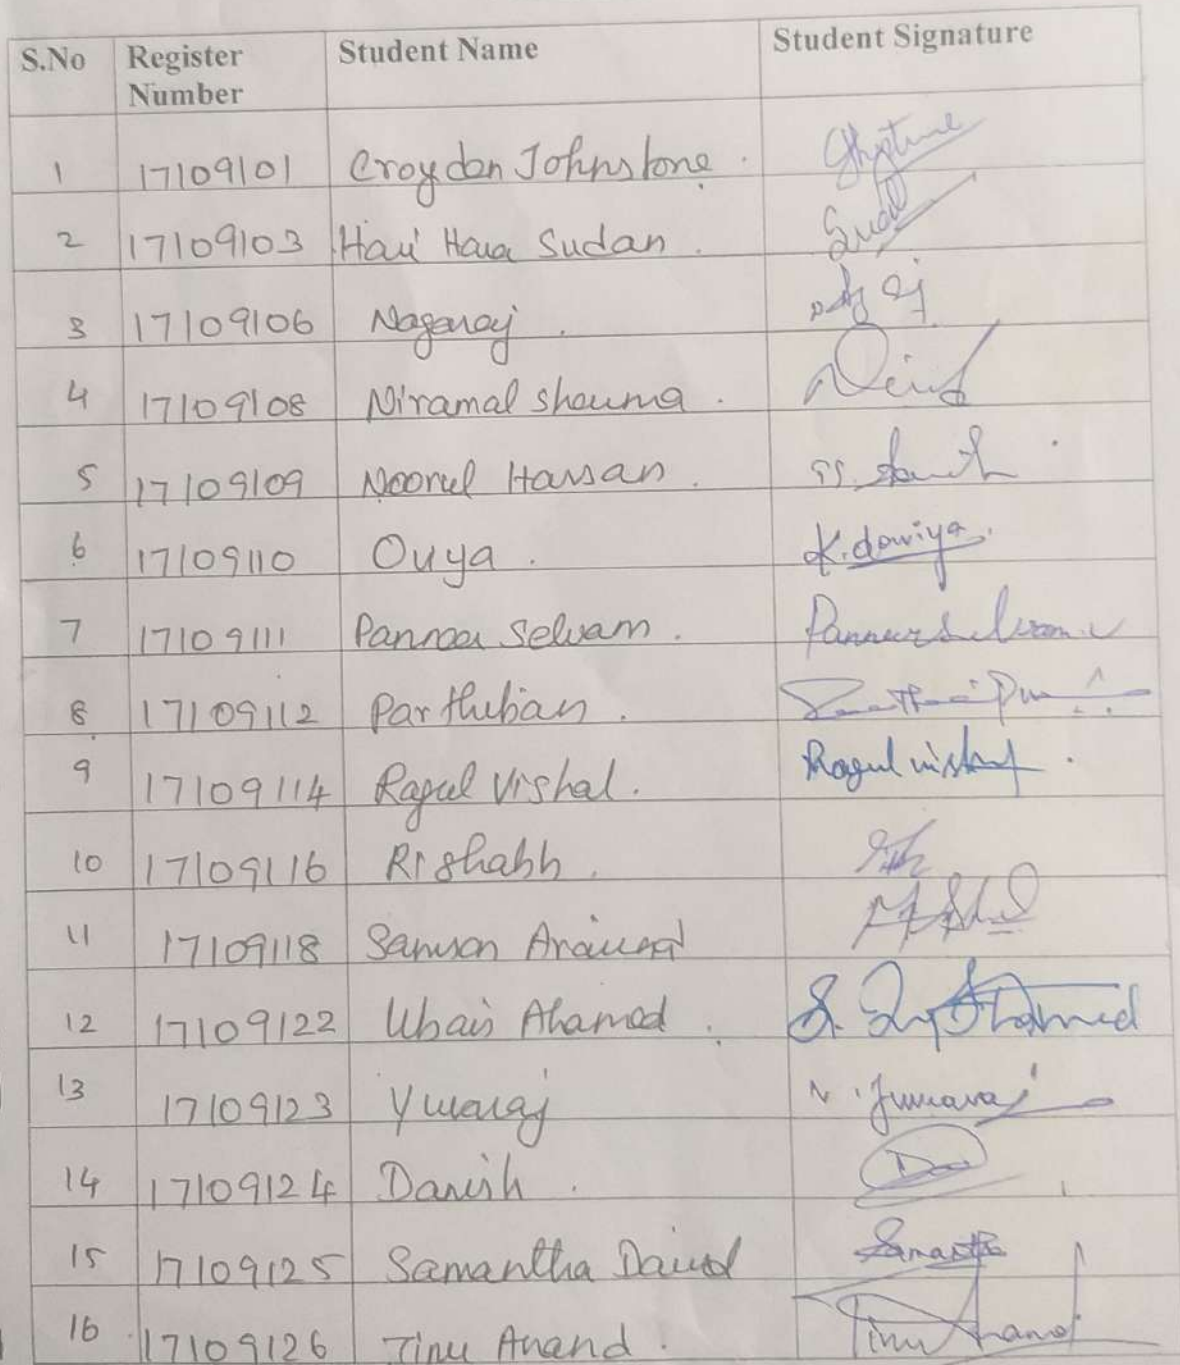 S.No Register Number Student Name Student Signature
1 17109101 Croydon Johnstone.
2 17109103 Hari Hara Sudan.
3 17109106 Nagaraj.
4 17109108 Niramal sharma.
5 17109109 Noorul Hassan.
6 17109110 Ouya. K. dowiya.
7 17109111 Panneer selvam.
8 17109112 Parthiban.
9 17109114 Ragul Vishal. Ragul vishal.
10 17109116 Rishabh.
11 17109118 Samson
12 17109122 Ubais Ahamed.
13 17109123 Yuvaraj
14 17109124 Danish.
15 17109125 Samantha David Samantha
16 17109126 Tinu Anand. Tinu Anand